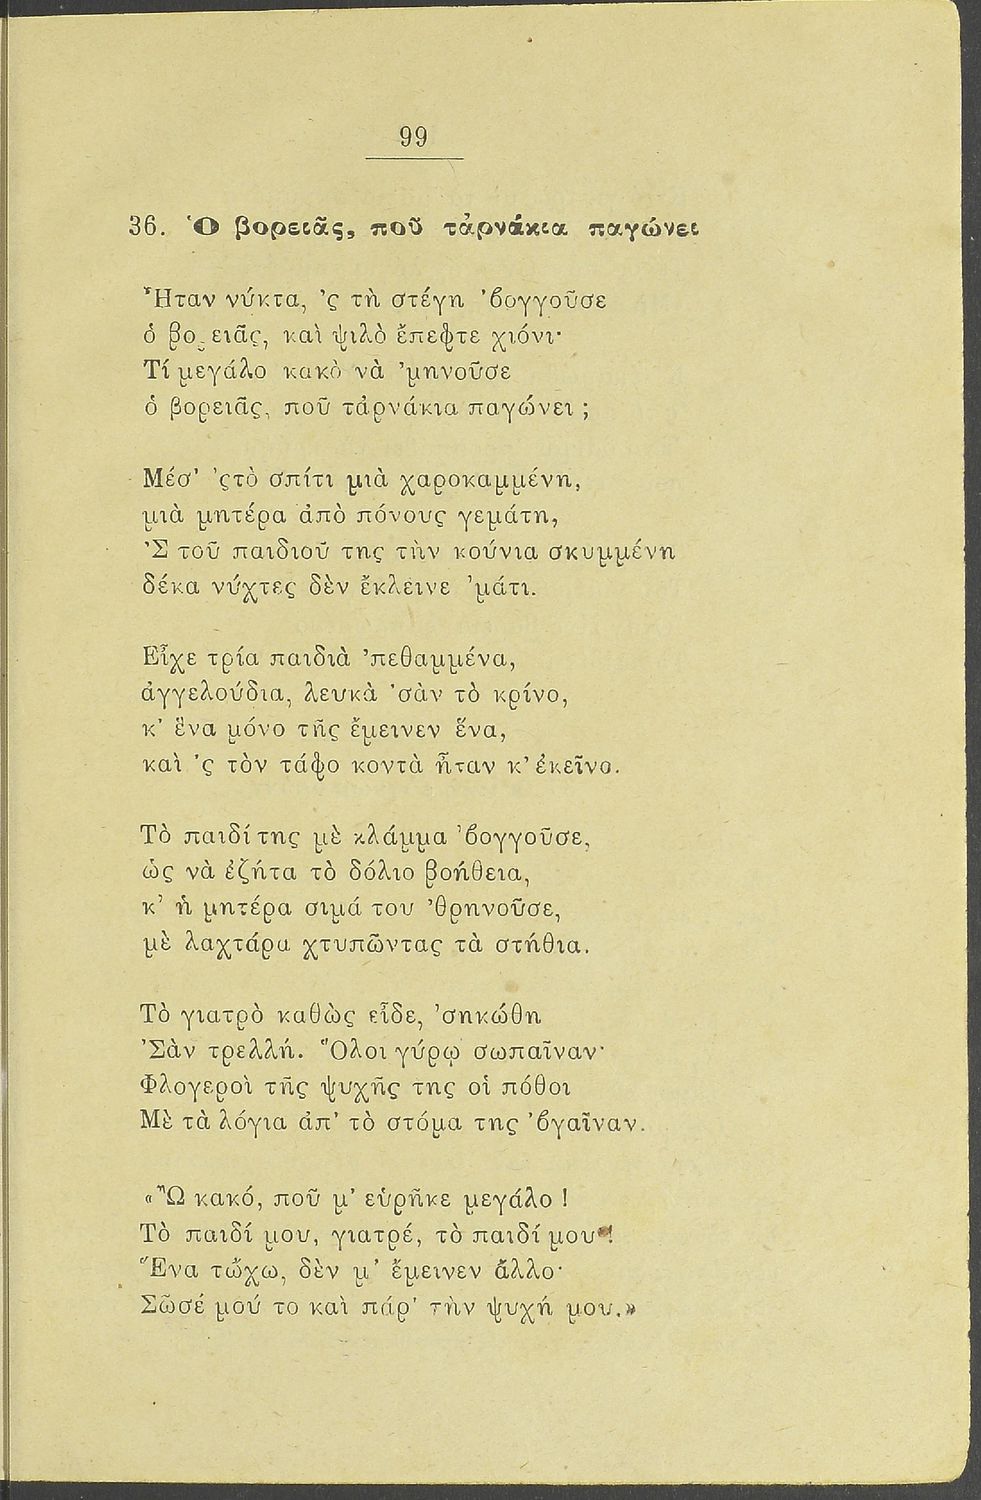 99
36. Ὁ βορειᾶς, ποῦ τἀρνάκια παγώνει
Ἦταν νύκτα, ’ς τὴ στέγη ’βογγοῦσε
ὁ βορειᾶς, καὶ ψιλὸ ἔπεφτε χιόνι·
Τί μεγάλο κακὸ νὰ ’μηνοῦσε
ὁ βορειᾶς, ποῦ τἀρνάκια παγώνει ;
Μέσ’ ’ςτὸ σπίτι μιὰ χαροκαμμένη,
μιὰ μητέρα ἀπὸ πόνους γεμάτη,
’Σ τοῦ παιδιοῦ της τὴν κούνια σκυμμένη
δέκα νύχτες δὲν ἔκλεινε ’μάτι.
Εἶχε τρία παιδιὰ ’πεθαμμένα,
ἀγγελούδια, λευκὰ ’σὰν τὸ κρίνο,
κ’ ἕνα μόνο τῆς ἔμεινεν ἕνα,
καὶ ’ς τὸν τάφο κοντὰ ἦταν κ’ ἐκεῖνο.
Τὸ παιδί της μὲ κλάμμα ’βογγοῦσε,
ὡς νὰ ἐζήτα τὸ δόλιο βοήθεια,
κ’ ἡ μητέρα σιμά του ’θρηνοῦσε,
μὲ λαχτάρα χτυπῶντας τὰ στήθια.
Τὸ γιατρὸ καθὼς εἶδε, ’σηκώθη
’Σὰν τρελλή. Ὅλοι γύρῳ σωπαῖναν·
Φλογεροὶ τῆς ψυχῆς της οἱ πόθοι
Μὲ τὰ λόγια ἀπ’ τὸ στόμα της ’βγαῖναν.
«Ὢ κακό, ποῦ μ’ εὑρῆκε μεγάλο !
Τὸ παιδί μου, γιατρέ, τὸ παιδί μου!
Ἕνα τὤχω, δὲν μ’ ἔμεινεν ἄλλο·
Σῶσέ μού το καὶ πάρ’ τὴν ψυχή μου.»